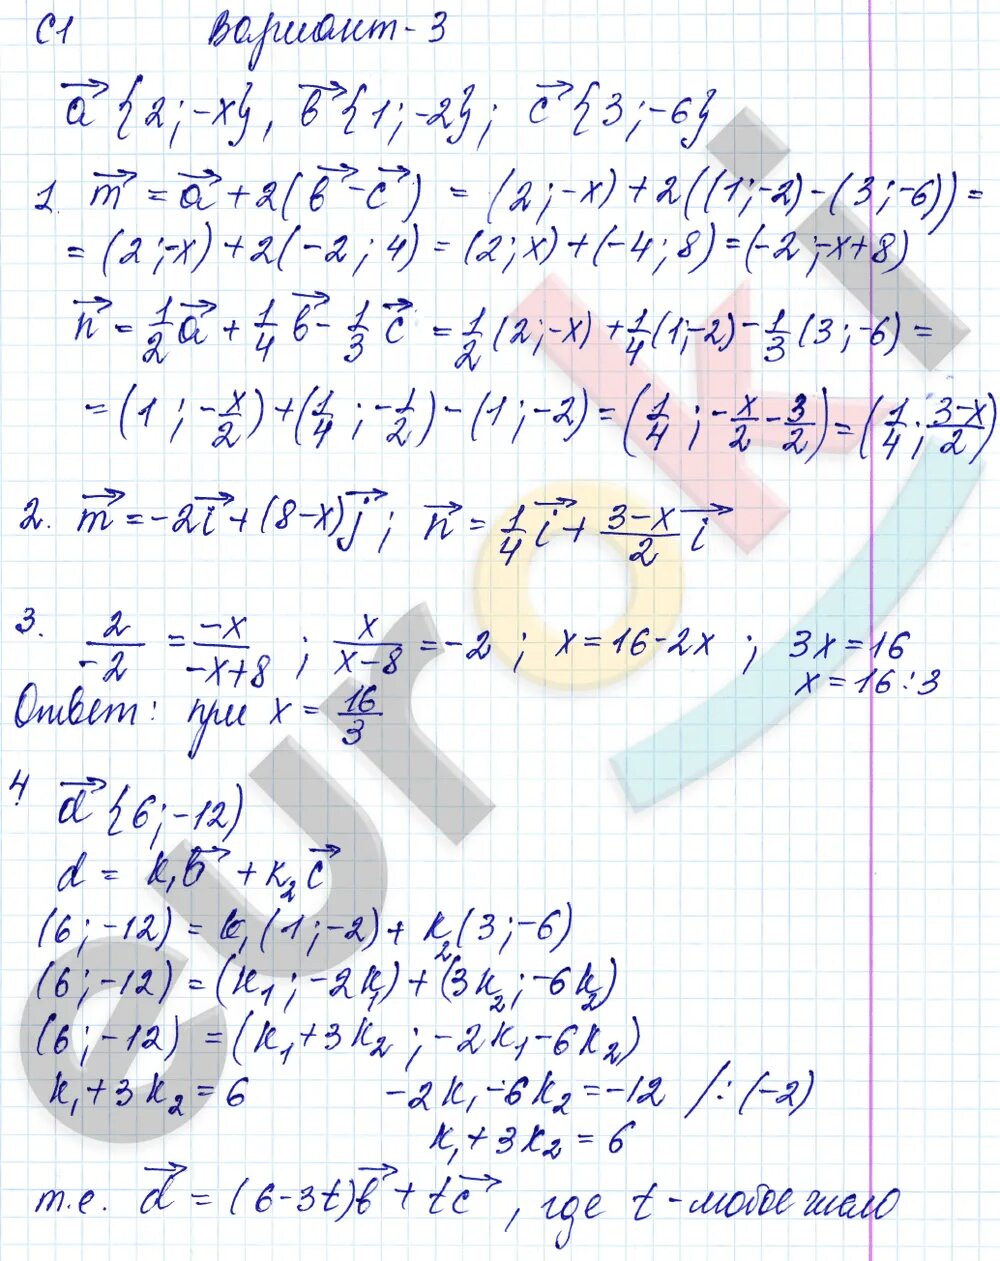 С1 Вариант-3
a⃗ {2;-x}, b⃗ {1;-2}; c⃗ {3;-6}
1. m⃗ = a⃗ + 2(b⃗ - c⃗) = (2;-x) + 2((1;-2) - (3;-6)) =
= (2;-x) + 2(-2;4) = (2;x) + (-4;8) = (-2;-x+8)
n⃗ = 1/2 a⃗ + 1/4 b⃗ - 1/3 c⃗ = 1/2 (2;-x) + 1/4 (1;-2) - 1/3 (3;-6) =
= (1; -x/2) + (1/4; -1/2) - (1;-2) = (1/4; -x/2 - 3/2) = (1/4; 3-x/2)
2. m⃗ = -2i⃗ + (8-x)j⃗; n⃗ = 1/4 i⃗ + 3-x/2 i⃗
3. 2/-2 = -x/-x+8; x/x-8 = -2; x = 16-2x; 3x = 16
x = 16:3
Ответ: при x = 16/3
4 d⃗ {6;-12)
d = k₁b⃗ + k₂c⃗
(6;-12) = k₁(1;-2) + k₂(3;-6)
(6;-12) = (k₁;-2k₁) + (3k₂;-6k₂)
(6;-12) = (k₁+3k₂;-2k₁-6k₂)
k₁+3k₂ = 6 -2k₁-6k₂ = -12 /:(-2)
k₁+3k₂ = 6
т.е. d⃗ = (6-3t)b⃗ + tc⃗, где t - любое число
euroki